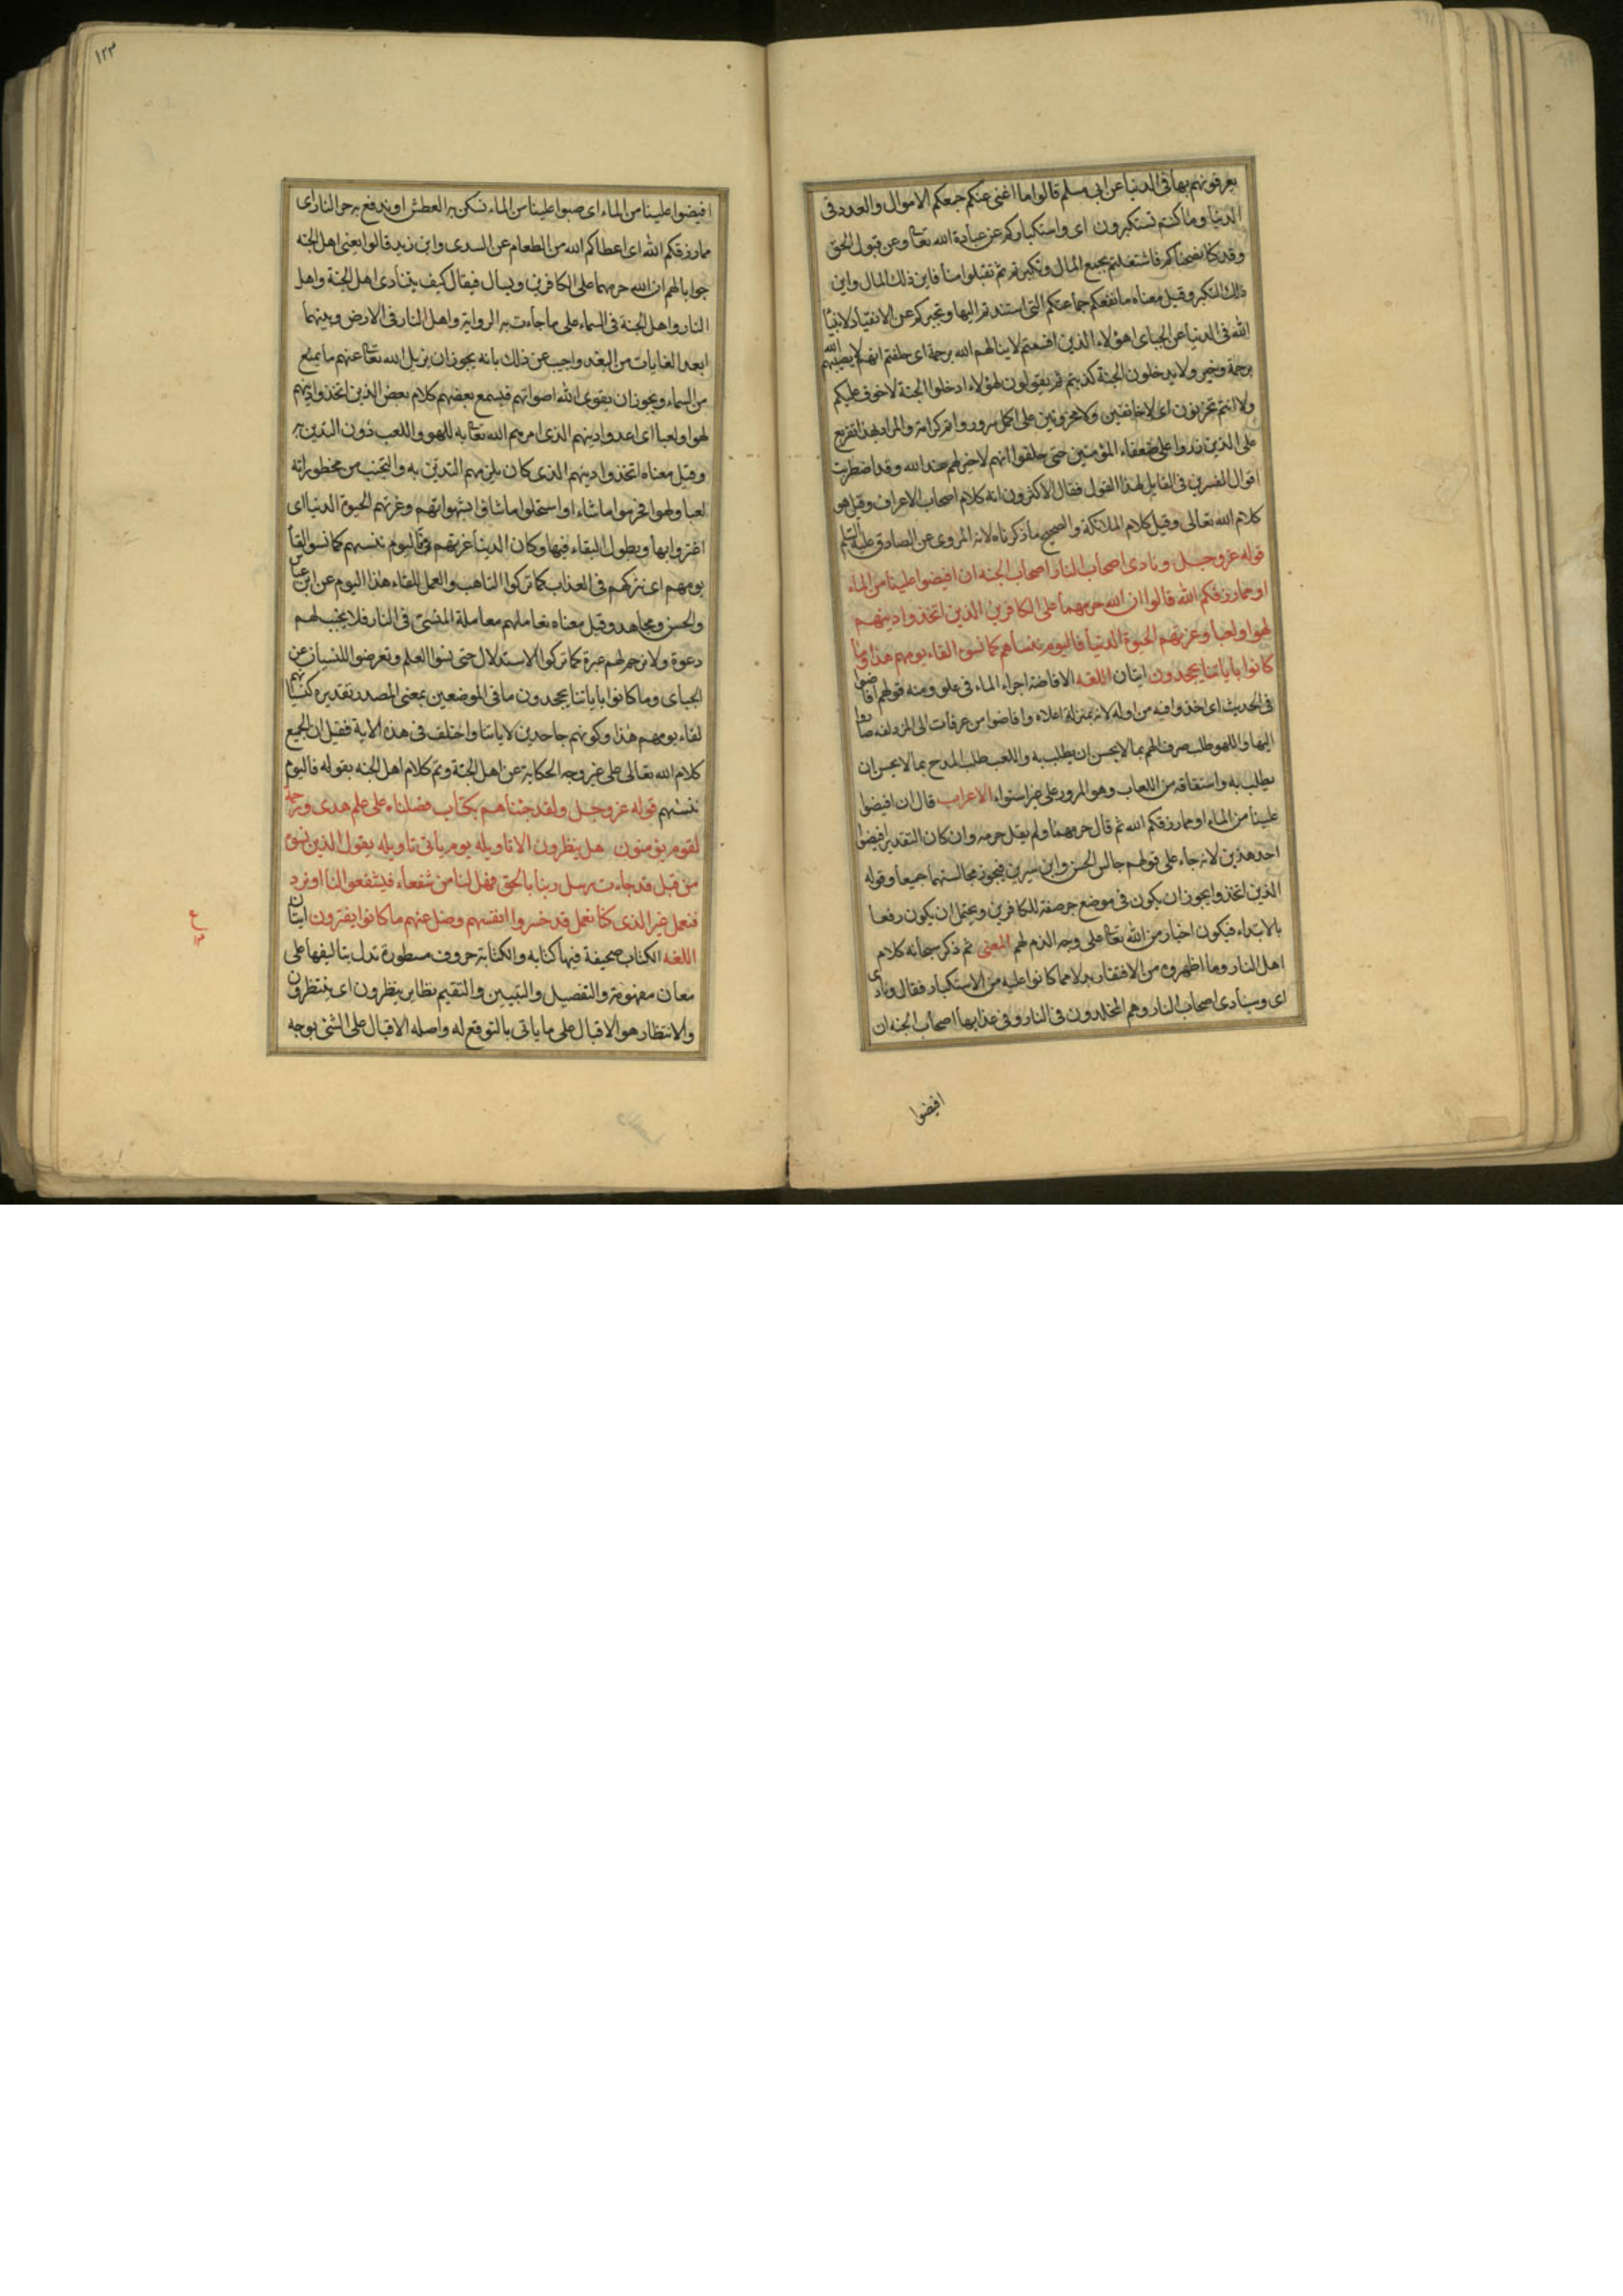 يعرفونهم بها في الدنيا عن ابي مسلم قالوا ما اغنى عنكم جمعكم الاموال والعدد في
الدنيا وما كنتم تستكبرون اى واستكباركم عن عبادة الله تعا وعن قبول الحق
وقد كنا نصحناكم فاشتغلتم بجمع المال وتكبرتم ثم تقبلوا منا فاين ذلك المال واين
ذلك التكبر وقيل معناه ما نفعكم جماعتكم التى استندتم اليها وتجبركم عن الانقياد لانبياء
الله فى الدنيا عن الجباى اهؤلاء الذين اقسمتم لا ينالهم الله برحمة اى حلفتم انهم لا يصيبهم الله
برحمة وخير ولا يدخلون الجنة كذبتم ثم يقولون لهؤلاء ادخلوا الجنة لا خوف عليكم
ولا انتم تحزنون اى لا خائفين ولا محزونين على اكمل سرور واتم كرامة والمراد بهذا تقريع
على الذين زروا على ضعفاء المؤمنين حتى حلفوا انهم لا خير لهم عند الله وقد اضطربت
اقوال المفسرين فى القايل لهذا القول فقال الاكثرون انه كلام اصحاب الاعراف وقيل هو
كلام الله تعالى وقيل كلام الملائكة والصحيح ما ذكرناه لانه المروى عن الصادق عليه السلم
قوله عز وجل ونادى اصحاب النار اصحاب الجنه ان افيضوا علينا من الماء
او مما رزقكم الله قالوا ان الله حرمهما على الكافرين الذين اتخذوا دينهم
لهوا ولعبا وغرتهم الحيوة الدنيا فاليوم ننساهم كما نسوا لقاء يومهم هذا وما
كانوا باياتنا يجحدون ايتان اللغه الافاضة اجراء الماء فى علو ومنه قولهم افاضوا
فى الحديث اى اخذوا فيه من اوله لانه بمنزلة اعلاه وافاضوا من عرفات الى المزدلفه صاروا
اليها واللهو طلب صرف الهم بما لا يحسن ان يطلب به واللعب طلب المدح بما لا يحسن ان
يطلب به واشتقاقه من اللعاب وهو المرور على غير استواء الاعراب قال ان افيضوا
علينا من الماء او مما رزقكم الله ثم قال حرمهما ولم يقل حرمه وان كان التقدير افيضوا
احد هذين لانه جاء على قولهم جالس الحسن وابن سيرين فيجوز مجالستهما جميعا وقوله
الذين اتخذوا يجوز ان يكون فى موضع جر صفة للكافرين ويحتمل ان يكون رفعا
بالابتداء فيكون اخبار من الله تعا على وجه الذم لهم المعنى ثم ذكر سبحانه كلام
اهل النار وما اظهروه من الافتقار بدلا مما كانوا عليه من الاستكبار فقال ونادى
اى وسينادى اصحاب النار وهم المخلدون فى النار وفى عذابها اصحاب الجنه ان
افيضوا
١٢٣
افيضوا علينا من الماء اى صبوا علينا من الماء نسكن به العطش او ندفع به حر النار اى
مما رزقكم الله اى اعطاكم الله من الطعام عن السدى وابن زيد قالوا يعنى اهل الجنه
جوابا لهم ان الله حرمهما على الكافرين ويسال فيقال كيف يتنادى اهل الجنة واهل
النار واهل الجنة فى السماء على ما جاءت به الرواية واهل النار فى الارض وبينهما
ابعد الغايات من البعد واجيب عن ذلك بانه يجوز ان يزيل الله تعا عنهم ما يمنع
من السماء ويجوز ان يقوى الله اصواتهم فيسمع بعضهم كلام بعض الذين اتخذوا دينهم
لهوا ولعبا اى اعدوا دينهم الذى امرهم الله تعا به للهو واللعب دون التدين به
وقيل معناه اتخذوا دينهم الذى كان يلزمهم التدين به والتجنب من محظوراته
لعبا ولهوا فحرموا ما شاءوا واستحلوا ما شاؤا بشهواتهم وغرتهم الحيوة الدنيا اى
اغتروا بها وبطول البقاء فيها وكان الدنيا غرتهم فاليوم ننسيهم كما نسوا لقاء
يومهم اى نتركهم فى العذاب كما تركوا التاهب والعمل للقاء هذا اليوم عن ابن عباس
والحسن ومجاهد وقيل معناه نعاملهم معاملة المنسى فى النار فلا يجب لهم
دعوة ولا نرحم لهم عبرة كما تركوا الاستدلال حتى نسوا العلم وتعرضوا للنسيان عن
الجباى وما كانوا باياتنا يجحدون ما فى الموضعين بمعنى المصدر تقديره كنسيانهم
لقاء يومهم هذا وكونهم جاحدين لاياتنا واختلف فى هذه الاية فقيل ان الجميع
كلام الله تعالى على غير وجه الحكاية عن اهل الجنة وتم كلام اهل الجنه بقوله فاليوم
ننسيهم قوله عز وجل ولقد جئناهم بكتاب فصلناه على علم هدى ورحمة
لقوم يؤمنون هل ينظرون الا تاويله يوم ياتى تاويله يقول الذين نسوه
من قبل قد جاءت رسل ربنا بالحق فهل لنا من شفعاء فيشفعوا لنا او نرد
فنعمل غير الذى كنا نعمل قد خسروا انفسهم وضل عنهم ما كانوا يفترون ايتان
اللغه الكتاب صحيفة فيها كتابه والكتابة حروف مسطورة تدل بتاليفها على
معان مفهومة والتفصيل والتبيين والتقسيم نظاير ينظرون اى ينتظرون
والانتظار هو الاقبال على ما ياتى بالتوقع له واصله الاقبال على الشئ بوجه